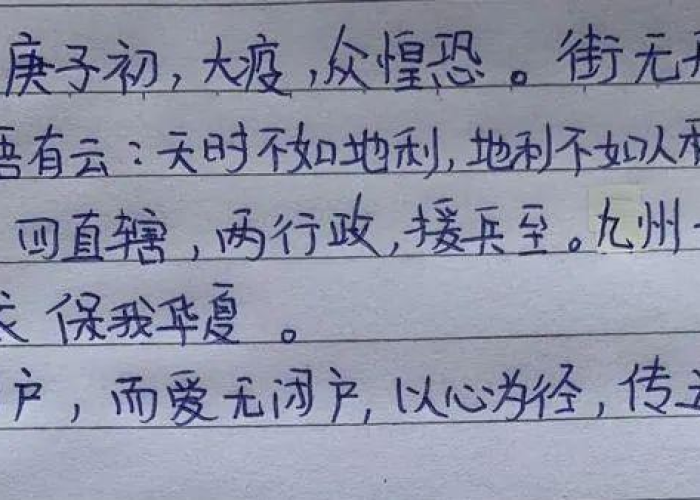 庚子初，大疫，众惶恐。街无
语有云：天时不如地利，地利不如人和
四直辖，两行政，援兵至。九州
保我华夏。
户，而爱无闭户，以心为径，传